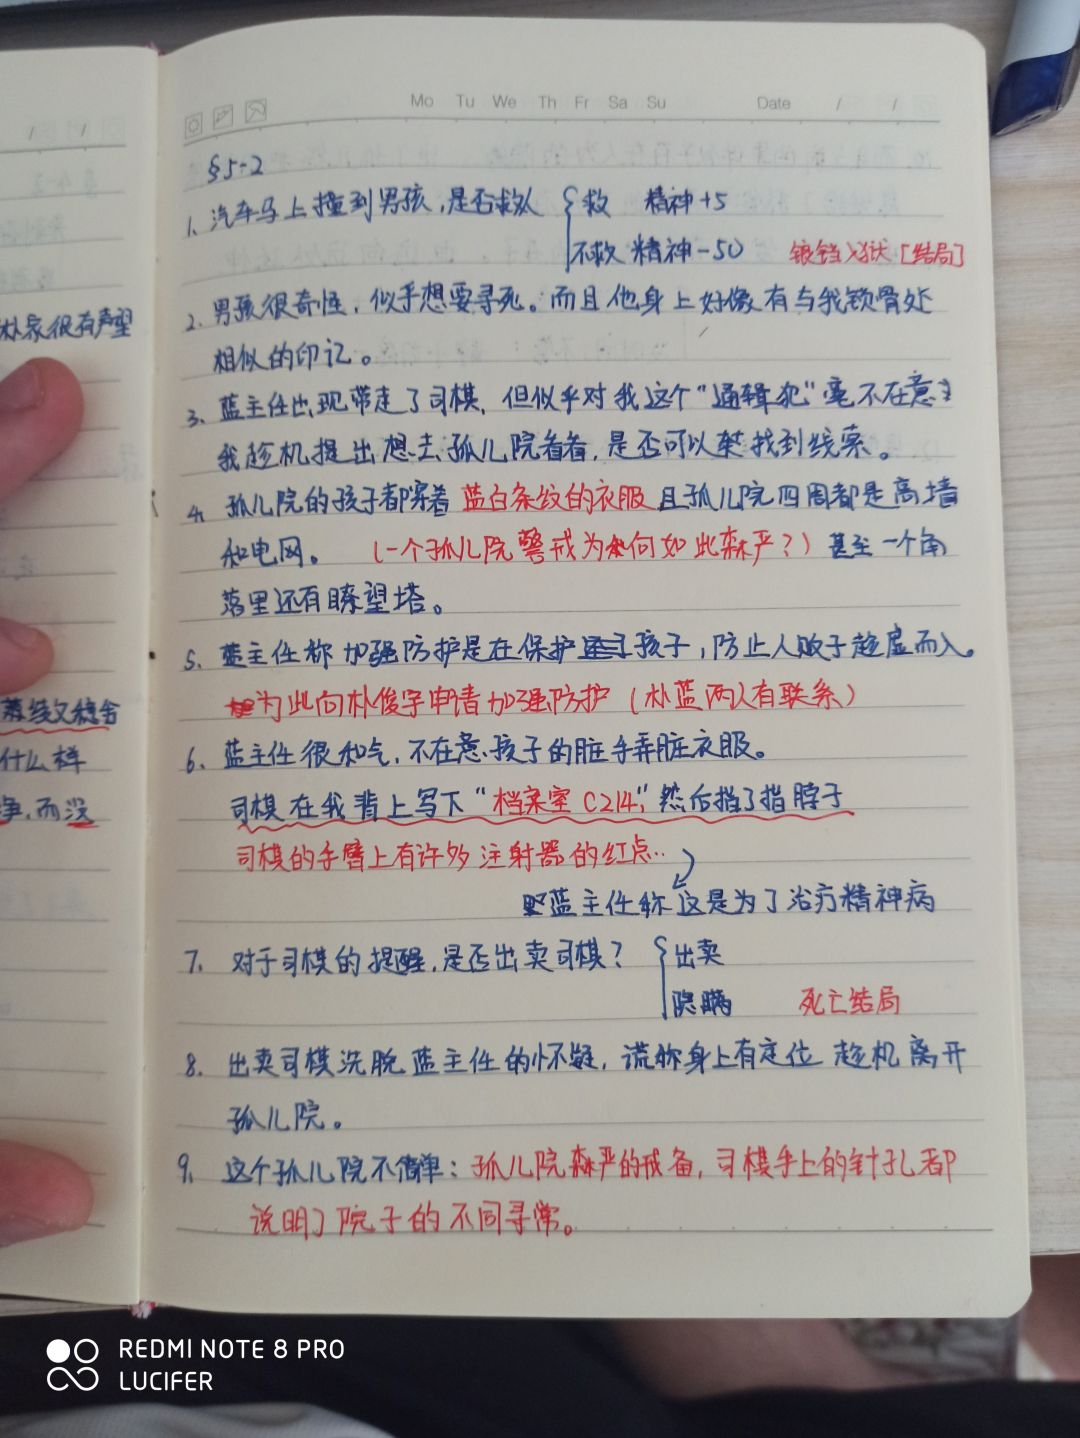 Mo Tu We Th Fr Sa Su Date / /
§5-2
1、汽车马上撞到男孩,是否救人 救 精神+5
不救 精神-50 锒铛入狱[结局]
2、男孩很奇怪,似乎想要寻死。而且他身上好像有与我锁骨处
相似的印记。
3、蓝主任出现带走了司棋,但似乎对我这个"通辑犯"毫不在意
我趁机提出想去孤儿院看看,是否可以找到线索。
4、孤儿院的孩子都穿着蓝白条纹的衣服且孤儿院四周都是高墙
和电网。(一个孤儿院警戒为何如此森严?)甚至一个角
落里还有瞭望塔。
5、蓝主任称加强防护是在保护孩子,防止人贩子趁虚而入。
为此向朴俊宇申请加强防护(朴蓝两人有联系)
6、蓝主任很和气,不在意孩子的脏手弄脏衣服。
司棋在我背上写下"档案室C214,"然后指了指脖子
司棋的手臂上有许多注射器的红点..
蓝主任称这是为了治疗精神病
7、对于司棋的提醒,是否出卖司棋? 出卖
隐瞒 死亡结局
8、出卖司棋洗脱蓝主任的怀疑,谎称身上有定位趁机离开
孤儿院。
9、这个孤儿院不简单:孤儿院森严的戒备,司棋手上的针孔都
说明了院子的不同寻常。
朴家很有声望
什么样
而没
REDMI NOTE 8 PRO
LUCIFER